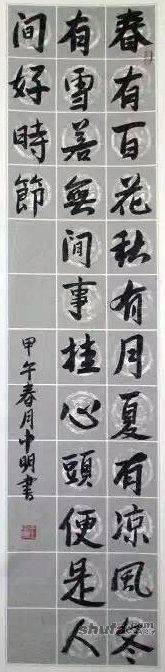 春有百花秋有月夏有凉風冬
有雪善無間事挂心頭便是人
間好時節
甲午春月中明書